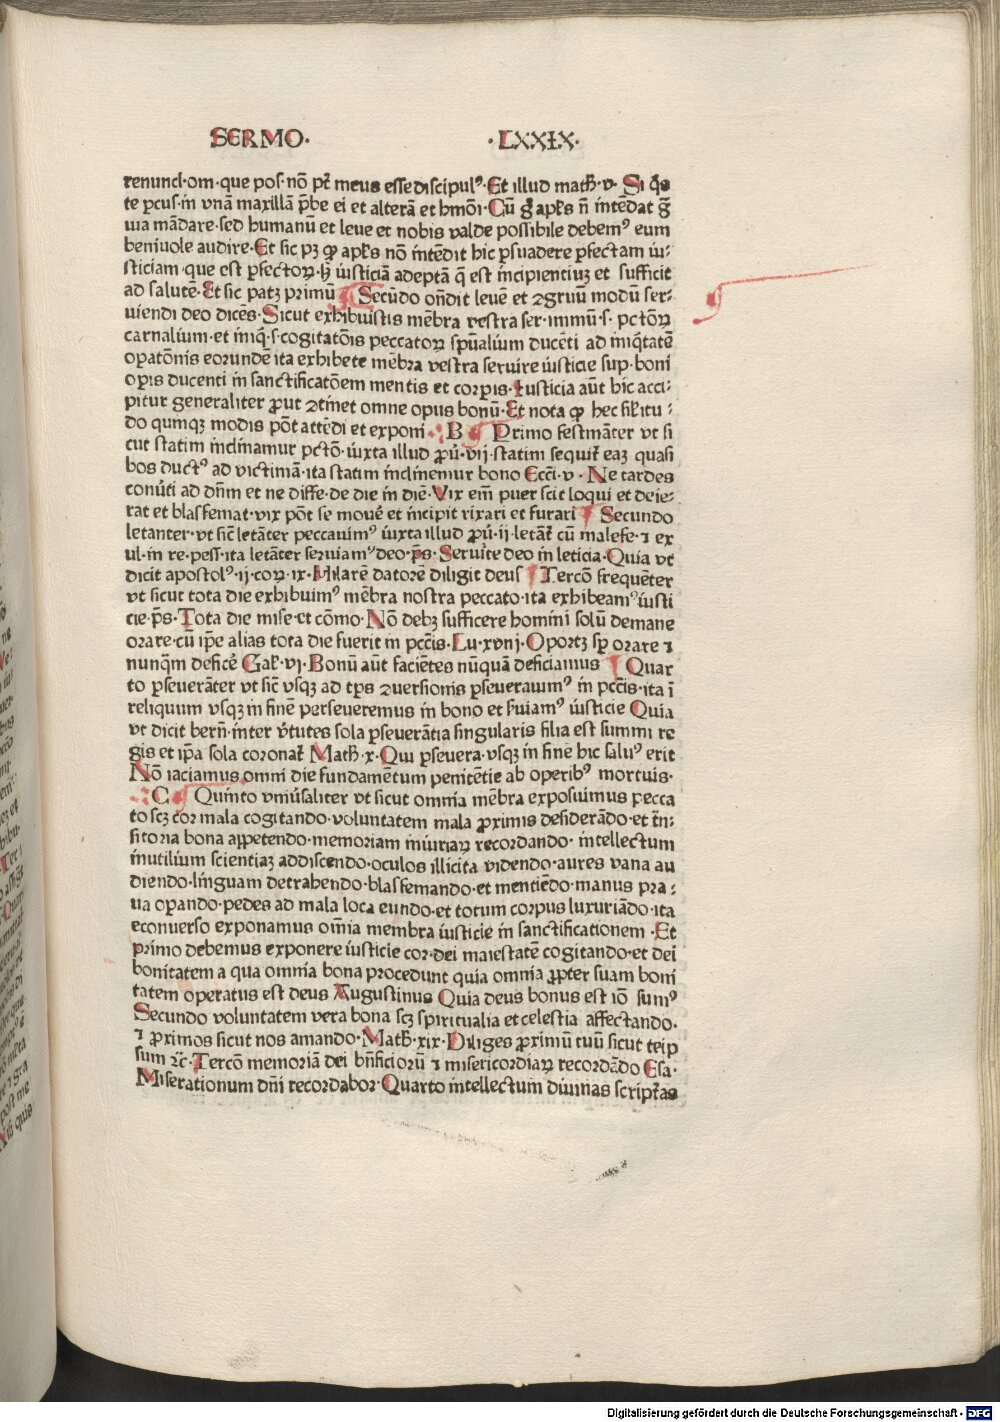 SERMO· ·LXXIX·
renuncl·om·que pos·nō pt̄ meus esse discipulꝰ·Et illud matħ·v· Si q̄s
te ꝑcus·in vnā maxillā p̄be ei et alterā et hmōi·Cū gͥ apl̄s n̄ intēdat
uia mādare·sed humanū et leue et nobis valde possibile debemꝰ eum
beniuole audire·Et sic pꝫ ꝙ apl̄s nō intēdit hic ꝑsuadere ꝑfectam iu⸗
sticiam·que est ꝑfectoꝝ·ꝫ iusticiā adeptā q̄ est incipientiuꝫ et sufficit
ad salutē·Et sic patꝫ primū Secūdo on̄dit leuē et ꝯgruū modū ser⸗
uiendi deo dicēs·Sicut exhibuistis mēbra vestra ser·immū·s·pctōꝝ
carnalium·et iniq̄·s·cogitatōis peccatoꝝ spūalium ducēti ad iniq̄tatē
oꝑatōnis eorundē ita exhibete mēbra vestra seruire iusticie sup·boni
oꝑis ducenti in sanctificatōem mentis et corꝑis·Iusticia aūt hic acci⸗
pitur generaliter ꝓut ꝯtinet omne opus bonū·Et nota ꝙ hec sil̄itu⸗
do qumqꝫ modis pōt attēdi et exponi ·:B Primo festināter vt si
cut statim inclinamur pctō·iuxta illud ꝓū·vij·statim sequit̄ eaꝫ quasi
bos ductꝰ ad victimā·ita statim inclinemur bono Eccī·v· Ne tardes
conūti ad dn̄m et ne diffe·de die in diē·Vix em̄ puer scit loqui et deie⸗
rat et blasfemat·vix pōt se mouē et incipit rixari et furari Secundo
letanter·vt sic̄ letāter peccauimꝰ iuxta illud ꝓū·ij·letāt̄ cū malefe·ꝛ ex
ul·in re·pess·ita letāter seruiamꝰ deo·p̄s·Seruite deo in leticia·Quia vt
dicit apostolꝰ·ij·coꝝ·ix·Hilarē datorē diligit deus Tercō frequēter
vt sicut tota die exhibuimꝰ mēbra nostra peccato·ita exhibeamꝰ iusti
cie·p̄s·Tota die mise·et cōmo·Nō debꝫ sufficere homini solū demane
orare·cū ip̄e alias tota die fuerit in pcc̄is·Lu·xvnj·Oportꝫ sꝑ orare ꝛ
nunq̄m deficē Gal̄·vj·Bonū aūt faciētes nūquā deficiamus Quar
to ꝑseuerāter vt sic̄ vsqꝫ ad tp̄s ꝯuersionis ꝑseuerauimꝰ in pcc̄is·ita ī
reliquum vsqꝫ in finē perseueremus in bono et ẜuiamꝰ iusticie Quia
vt dicit bern̄·inter v̄tutes sola ꝑseuerātia singularis filia est summi re
gis et ip̄a sola coronat̄ Matħ·x·Qui ꝑseuera·vsqꝫ in finē hic saluꝰ erit
Nō iaciamus omni die fundamētum penitētie ab operibꝰ mortuis·
·:C Quinto vniūsaliter vt sicut omnia mēbra exposuimus pecca
to scꝫ cor mala cogitando·voluntatem mala ꝓximis desiderādo·et trn̄⸗
sitoria bona appetendo·memoriam iniuriaꝝ recordando· intellectum
inutilium scientiaꝫ addiscendo·oculos illicita videndo·aures vana au
diendo·linguam detrahendo·blasfemando·et mentiēdo·manus pra⸗
ua oꝑando·pedes ad mala loca eundo·et totum corpus luxuriādo·ita
econuerso exponamus om̄ia membra iusticie in sanctificationem·Et
primo debemus exponere iusticie cor·dei maiestatē cogitando·et dei
bonitatem a qua omnia bona procedunt quia omnia ꝓpter suam boni
tatem operatus est deus Augustinus Quia deus bonus est iō sumꝰ
Secundo voluntatem vera bona scꝫ spiritualia et celestia affectando·
ꝛ ꝓximos sicut nos amando·Matħ·xix·Diliges ꝓximū tuū sicut teip
sum ꝛc̄·Tercō memoriā dei bn̄ficiorū ꝛ misericordiaꝝ recordādo Esa·
Miserationum dn̄i recordabor·Quarto intellectum diuinas script̄as
Digitalisierung gefördert durch die Deutsche Forschungsgemeinschaft - DFG